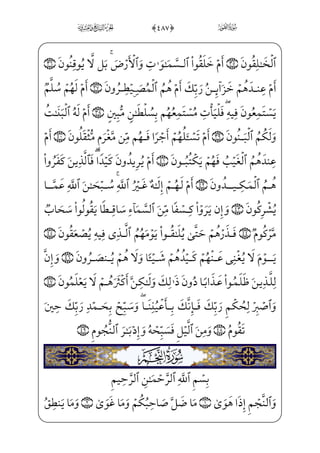 سُورَةُ الطُّورِ ﴿٤٨٧﴾ الجُزْءُ السَّابِعُ وَالعِشْرُونَ
ٱلْخَـٰلِقُونَ ۝٣٥ أَمْ خَلَقُوا۟ ٱلسَّمَـٰوَٰتِ وَٱلْأَرْضَ ۚ بَل لَّا يُوقِنُونَ ۝٣٦
أَمْ عِندَهُمْ خَزَآئِنُ رَبِّكَ أَمْ هُمُ ٱلْمُصَۣيْطِرُونَ ۝٣٧ أَمْ لَهُمْ سُلَّمٌ
يَسْتَمِعُونَ فِيهِ ۖ فَلْيَأْتِ مُسْتَمِعُهُم بِسُلْطَـٰنٍ مُّبِينٍ ۝٣٨ أَمْ لَهُ ٱلْبَنَـٰتُ
وَلَكُمُ ٱلْبَنُونَ ۝٣٩ أَمْ تَسْـَٔلُهُمْ أَجْرًا فَهُم مِّن مَّغْرَمٍ مُّثْقَلُونَ ۝٤٠ أَمْ
عِندَهُمُ ٱلْغَيْبُ فَهُمْ يَكْتُبُونَ ۝٤١ أَمْ يُرِيدُونَ كَيْدًا ۖ فَٱلَّذِينَ كَفَرُوا۟
هُمُ ٱلْمَكِيدُونَ ۝٤٢ أَمْ لَهُمْ إِلَـٰهٌ غَيْرُ ٱللَّهِ ۚ سُبْحَـٰنَ ٱللَّهِ عَمَّا
يُشْرِكُونَ ۝٤٣ وَإِن يَرَوْا۟ كِسْفًا مِّنَ ٱلسَّمَآءِ سَاقِطًا يَقُولُوا۟ سَحَابٌ
مَّرْكُومٌ ۝٤٤ فَذَرْهُمْ حَتَّىٰ يُلَـٰقُوا۟ يَوْمَهُمُ ٱلَّذِى فِيهِ يُصْعَقُونَ ۝٤٥
يَوْمَ لَا يُغْنِى عَنْهُمْ كَيْدُهُمْ شَيْـًٔا وَلَا هُمْ يُنصَرُونَ ۝٤٦ وَإِنَّ
لِلَّذِينَ ظَلَمُوا۟ عَذَابًا دُونَ ذَٰلِكَ وَلَـٰكِنَّ أَكْثَرَهُمْ لَا يَعْلَمُونَ ۝٤٧
وَٱصْبِرْ لِحُكْمِ رَبِّكَ فَإِنَّكَ بِأَعْيُنِنَا ۖ وَسَبِّحْ بِحَمْدِ رَبِّكَ حِينَ
تَقُومُ ۝٤٨ وَمِنَ ٱلَّيْلِ فَسَبِّحْهُ وَإِدْبَـٰرَ ٱلنُّجُومِ ۝٤٩
سُورَةُ النَّجْمِ
بِسْمِ ٱللَّهِ ٱلرَّحْمَـٰنِ ٱلرَّحِيمِ
وَٱلنَّجْمِ إِذَا هَوَىٰ ۝١ مَا ضَلَّ صَاحِبُكُمْ وَمَا غَوَىٰ ۝٢ وَمَا يَنطِقُ